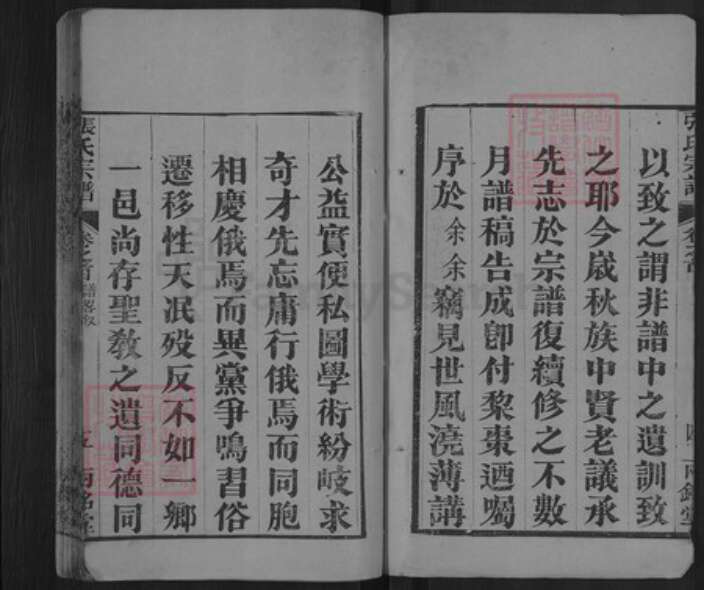 以致之謂非譜中之遺訓致
之耶今嵗秋族中賢老議承
先志於宗譜復續修之不數
月譜稿告成卽付黎棗迺囑
序於余余竊見世風澆薄講
張氏宗譜
卷之首 譜畧敘
五
兩銘堂
公益實便私圖學術紛岐求
奇才先忘庸行俄焉而同胞
相慶俄焉而異黨爭鳴習俗
遷移性天泯歿反不如一鄉
一邑尚存聖教之遺同德同